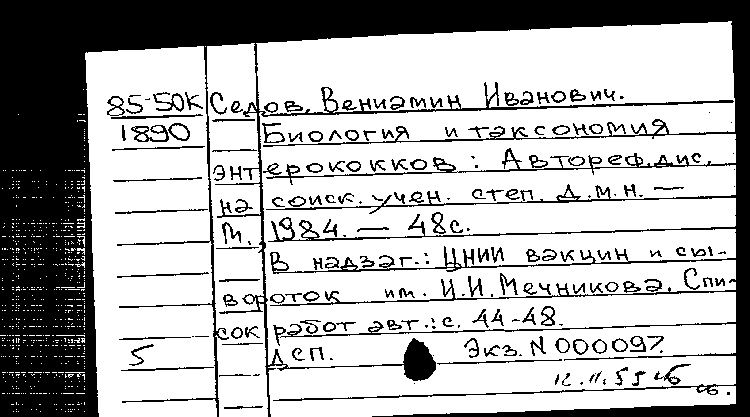 85-50К Седов, Вениамин Иванович.
1890 Биология и таксономия
энтерококков: Автореф. дис.
на соиск. учен. степ. д.м.н. —
М., 1984. — 48с.
В надзаг.: ЦНИИ вакцин и сы-
вороток им. И.И. Мечникова. Спи-
сок работ авт.: с. 44-48.
5 дсп. Экз. N 000097.
12.11.